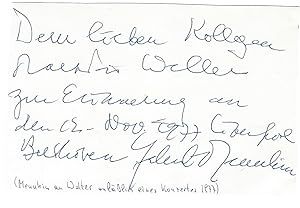 Dem lieben Kollegen
Walter Weller
zur Erinnerung an
den 12. Nov. 1977 Liverpool
Beethoven Yehudi Menuhin
(Menuhin an Weller anläßlich eines Konzertes 1977)